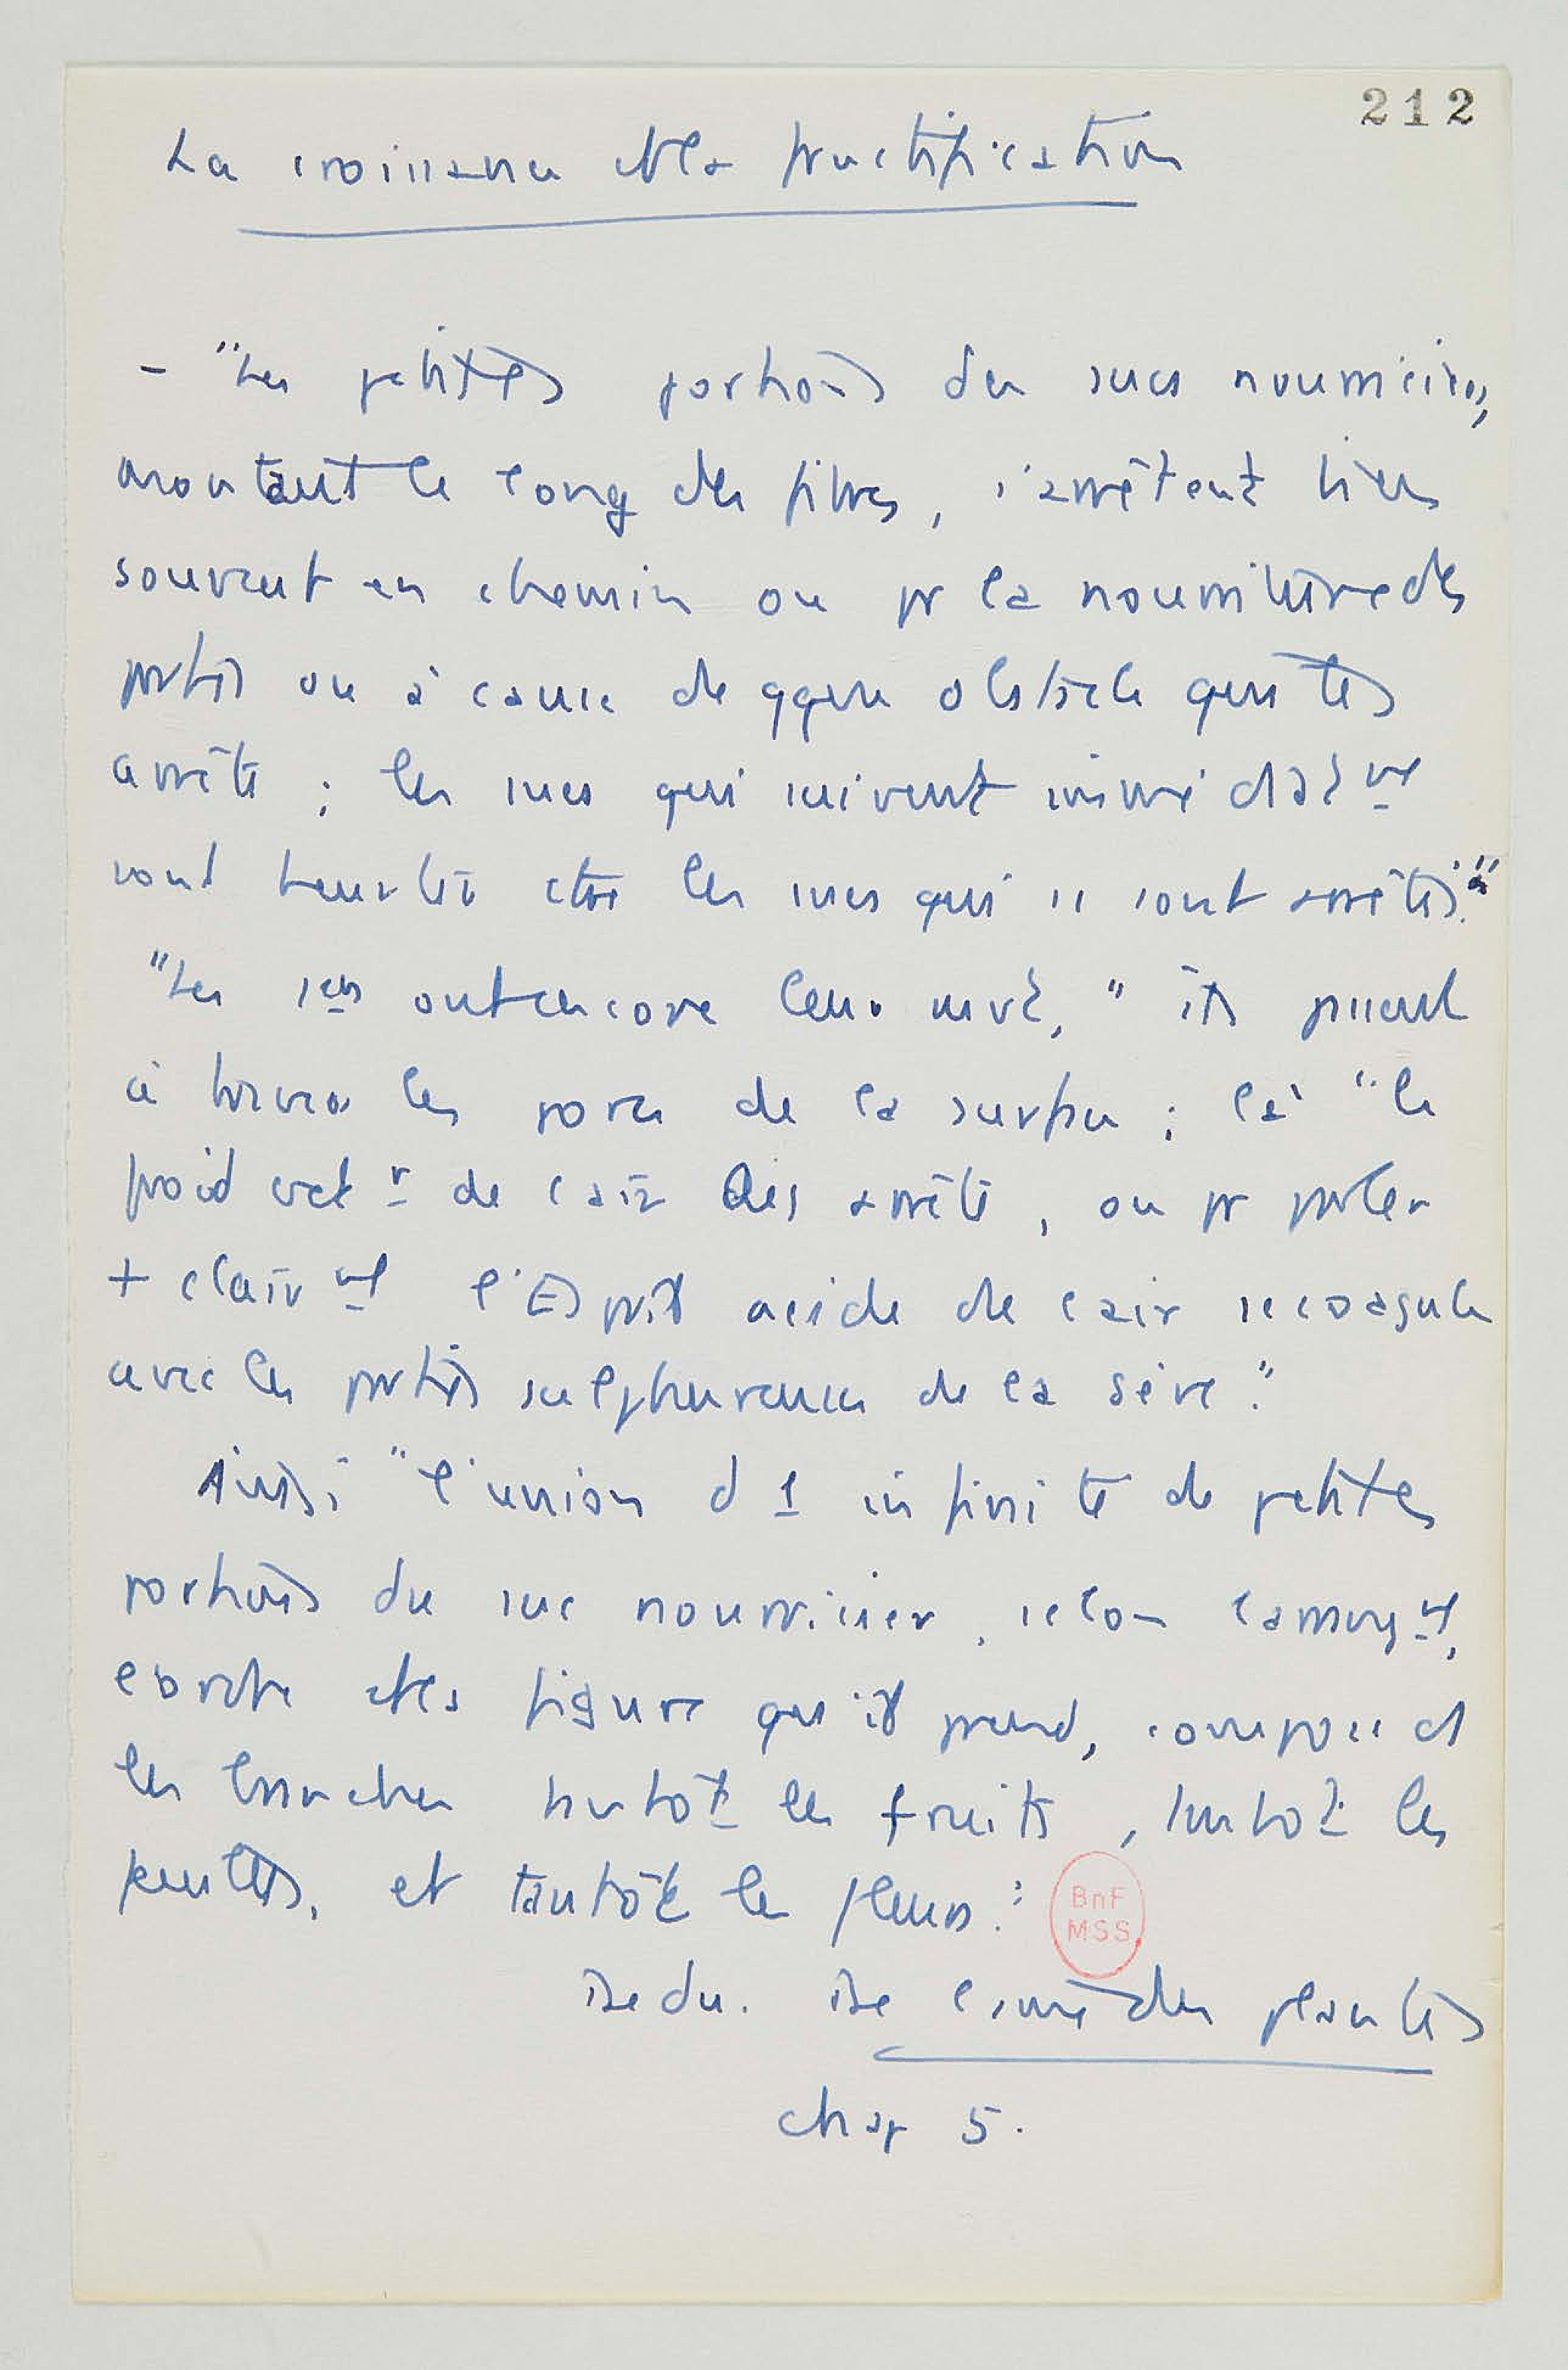 212
La croissance et la fructification
- "Les petites portions des sucs nourriciers,
montant le long des fibres, s'arrêtent bien
souvent en chemin ou pr la nourriture des
parties ou à cause de qque obstacle qui les
arrête ; les sucs qui suivent immédiat mt
vont heurter ctre les sucs qui se sont arrêtés."
"Les 1ers ont encore leur mvt," ils
à les pores de la surface ; là "le
froid extr de l'air les arrête, ou pr parler
+ clair mt l'Esprit acide de l'air se coagule
avec les parties sulphureuses de la sève."
Ainsi "l'union d 1 infinité de petites
portions du suc nourricier, selon l'arrangt,
l'ordre et la figure qu'il prend, compose
les branches tantôt les fruits, tantôt les
feuilles, et tantôt les fleurs."
BnF
MSS
Dedu. De l'âme des plantes
chap 5.